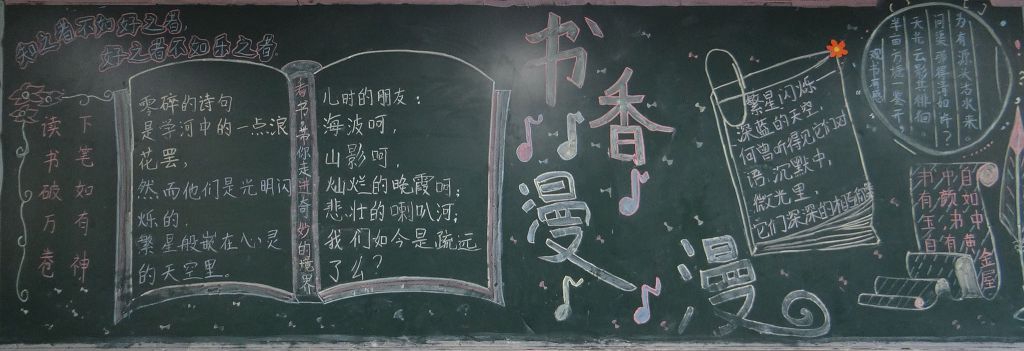 知之者不如好之者,
好之者不如乐之者,
读书破万卷
下笔如有神
零碎的诗句
是学河中的一点浪
花罢,
然而他们是光明闪
烁的.
繁星般嵌在心灵
的天空里。
看书带你走进奇妙的世界
儿时的朋友:
海波呵,
山影呵,
灿烂的晚霞呵;
悲壮的喇叭河;
我们如今是疏远
了么?
书香漫漫
繁星闪烁
深蓝的天空,
何曾听得见它们对
语,沉默中,
微光里,
它们深深的相
为有源头活水来
问渠那得清如许?
天光云影共徘徊
半亩方塘一鉴开,
观书有感
书中自有黄金屋
书中自有颜如玉